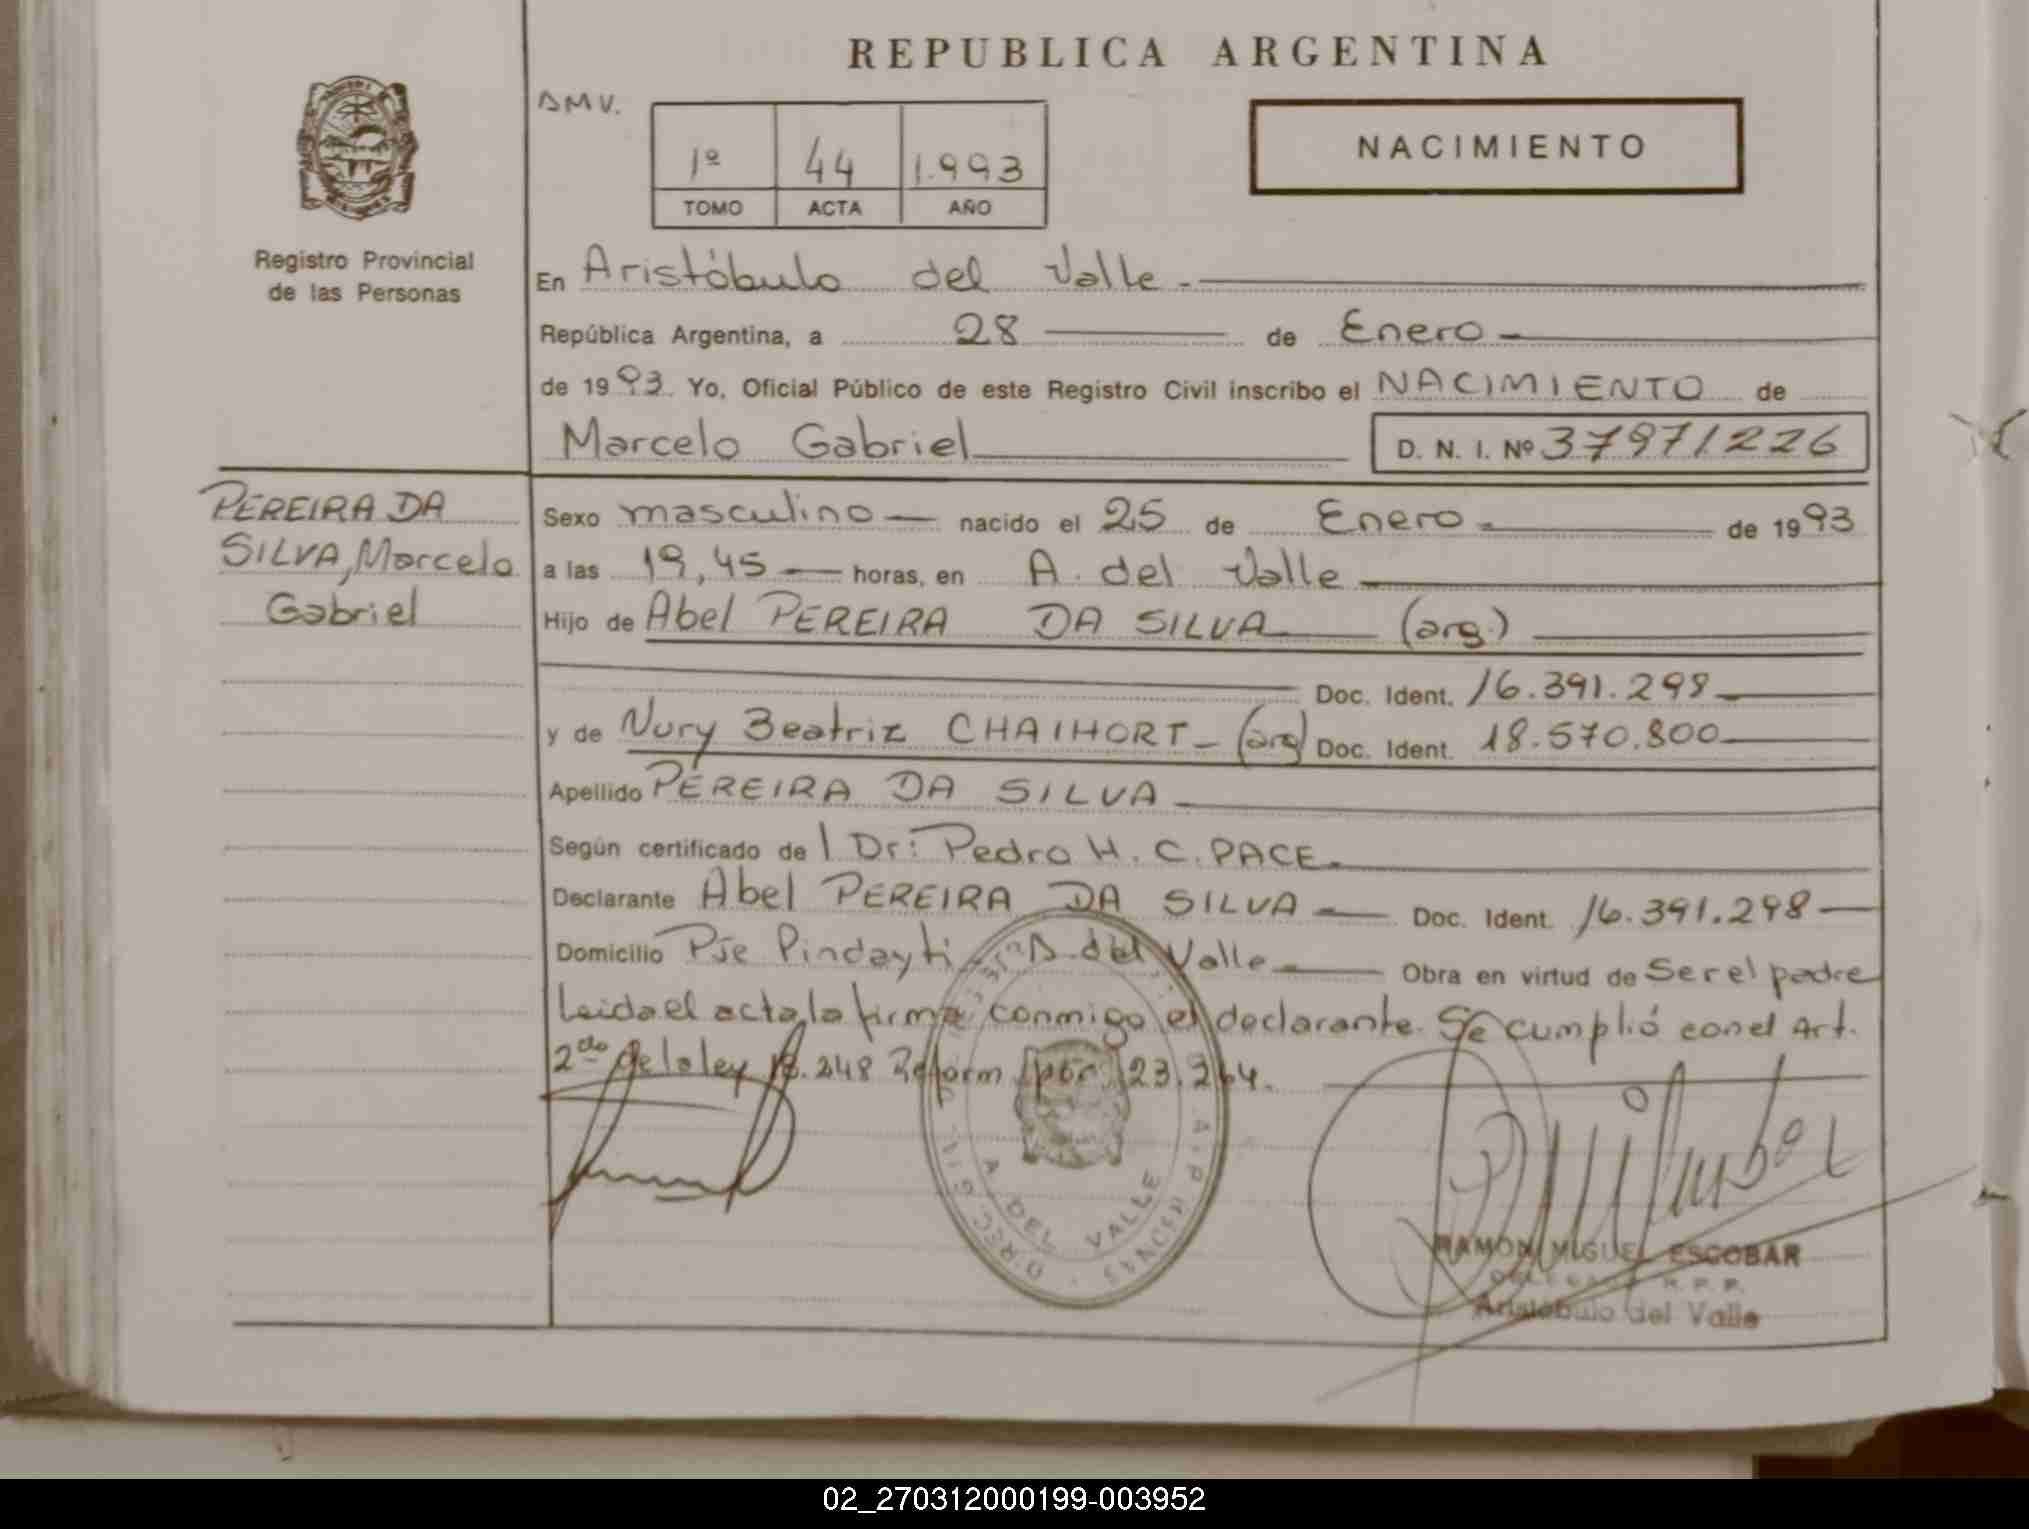 REPUBLICA ARGENTINA
NACIMIENTO
1º 44 1.993
TOMO ACTA AÑO
Registro Provincial
de las Personas
En Aristóbulo del Valle.
República Argentina, a 28 de Enero
de 1993 Yo, Oficial Público de este Registro Civil inscribo el NACIMIENTO de
Marcelo Gabriel D. N. I. Nº 37971226
PEREIRA DA
SILVA, Marcelo
Gabriel
Sexo masculino nacido el 25 de Enero de 1993
a las 19,45 horas, en A. del Valle
Hijo de Abel PEREIRA DA SILVA (arg.)
Doc. Ident. 16.391.298
y de Nury Beatriz CHAIHORT (arg) Doc. Ident. 18.570.800
Apellido PEREIRA DA SILVA
Según certificado de l Dr: Pedro H. C. PACE.
Declarante Abel PEREIRA DA SILVA Doc. Ident. 16.391.298
Domicilio Pje Pindayti A. del Valle Obra en virtud de Ser el padre
Leida el acta, la firma conmigo el declarante. Se cumplió con el Art.
2do de la ley 18.248 Reform por 23.264.
A. DEL VALLE
RAMON MIGUEL ESCOBAR
DELEGADO R. P. P.
Aristóbulo del Valle
02_270312000199-003952